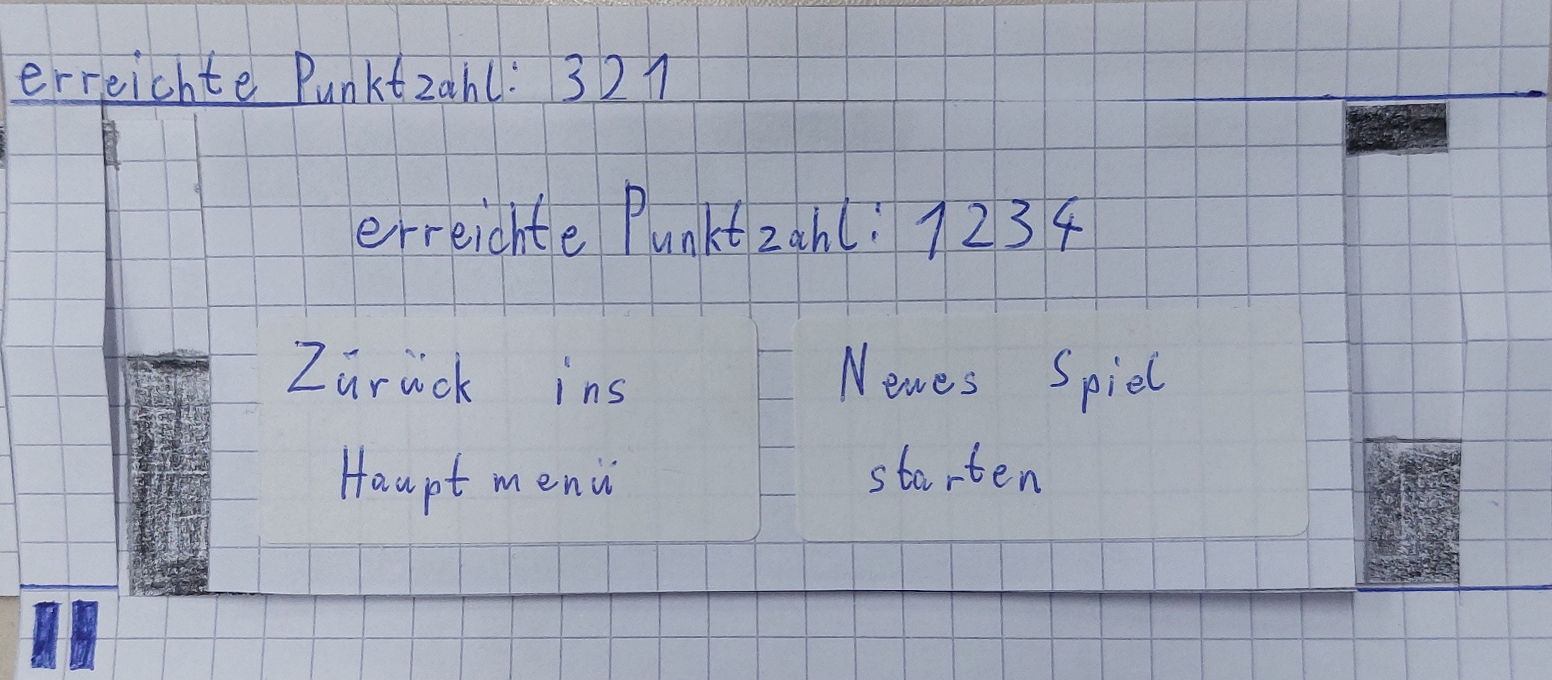 erreichte Punktzahl: 321
erreichte Punktzahl: 1234
Zurück ins
Hauptmenü
Neues Spiel
starten